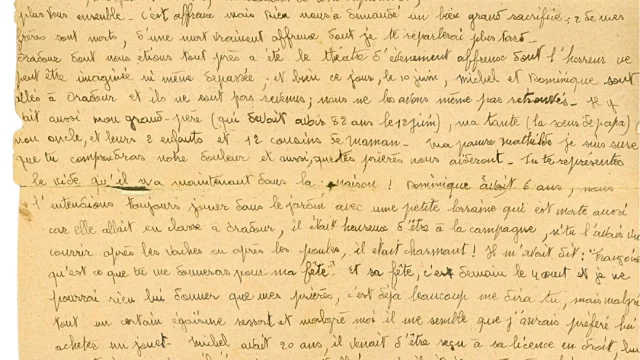 plus tous ensemble - c'est affreux mais Dieu nous a demandé un bien grand sacrifice : 2 de mes
frères sont morts, d'une mort vraiment affreuse dont je te reparlerai plus tard -
Oradour dont nous étions tout près a été le théâtre d'évènement affreux dont l'horreur ne
peut être imaginée ni même dépassée ; et bien ce jour, le 10 juin, Michel et Dominique sont
allés à Oradour et ils ne sont pas revenus ; nous ne les avons même pas retrouvés - Il y
avait aussi mon grand-père (qui devait avoir 82 ans le 12 juin), ma tante (la soeur de papa)
mon oncle, et leurs 2 enfants et 12 cousins de maman - Ma pauvre Mathilde je suis sûre
que tu comprendras notre douleur et aussi, que tes prières nous aideront - Tu te représentes
le vide qu'il y a maintenant dans la maison ! Dominique avait 6 ans, nous
l'entendions toujours jouer dans le jardin avec une petite lorraine qui est morte aussi
car elle allait en classe à Oradour, il était heureux d'être à la campagne, si tu l'avais vu
courir après les vaches ou après les poules, il était charmant ! Il m'avait dit : "Françoise
qu'est ce que tu me donneras pour ma fête" Et sa fête, c'est demain le 4 août et je ne
pourrai rien lui donner que mes prières, c'est déjà beaucoup me diras tu, mais malgré
tout un certain égoïsme ressort et malgré moi il me semble que j'aurais préféré lui
acheter un jouet - Michel avait 20 ans, il venait d'être reçu à sa licence en droit, lui